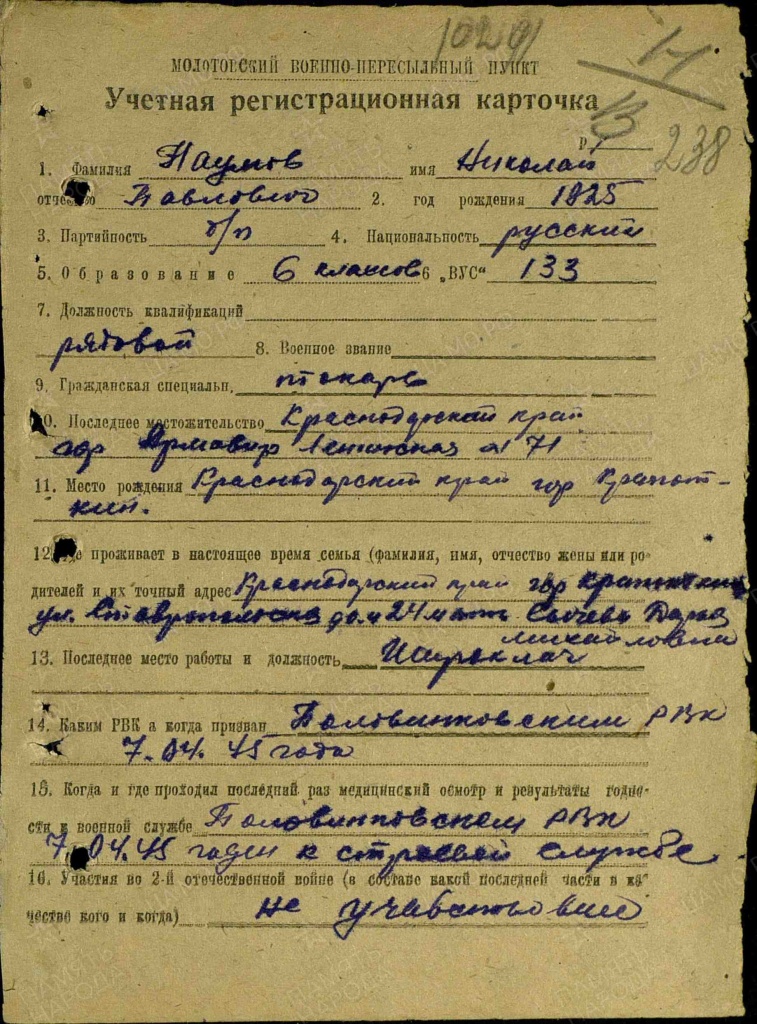 10291
Н
МОЛОТОВСКИЙ ВОЕННО-ПЕРЕСЫЛЬНЫЙ ПУНКТ
Учетная регистрационная карточка
238
1. Фамилия Наумов имя Николай
отчество Павлович 2. год рождения 1925
3. Партийность б/п 4. Национальность русский
5. Образование 6 классов 6 „ВУС“ 133
7. Должность квалификаций
рядовой 8. Военное звание
9. Гражданская специальн. токарь
10. Последнее местожительство Краснодарский край
гор Армавир Ленинская 71
11. Место рождения Краснодарский край гор Кропот-
кин.
12. Где проживает в настоящее время семья (фамилия, имя, отчество жены или ро-
дителей и их точный адрес Краснодарский край гор Кропоткин
ул. Ставропольская дом 24 мать Сычева Дарья
Михайловна
13. Последнее место работы и должность
14. Каким РВК а когда призван Половинковским РВК
7.04.45 года
15. Когда и где проходил последний раз медицинский осмотр и результаты годно-
сти к военной службе Половинковском РВК
7.04.45 годен к строевой службе
16. Участия во 2-й отечественной войне (в составе какой последней части в ка-
честве кого и когда) не участвовал